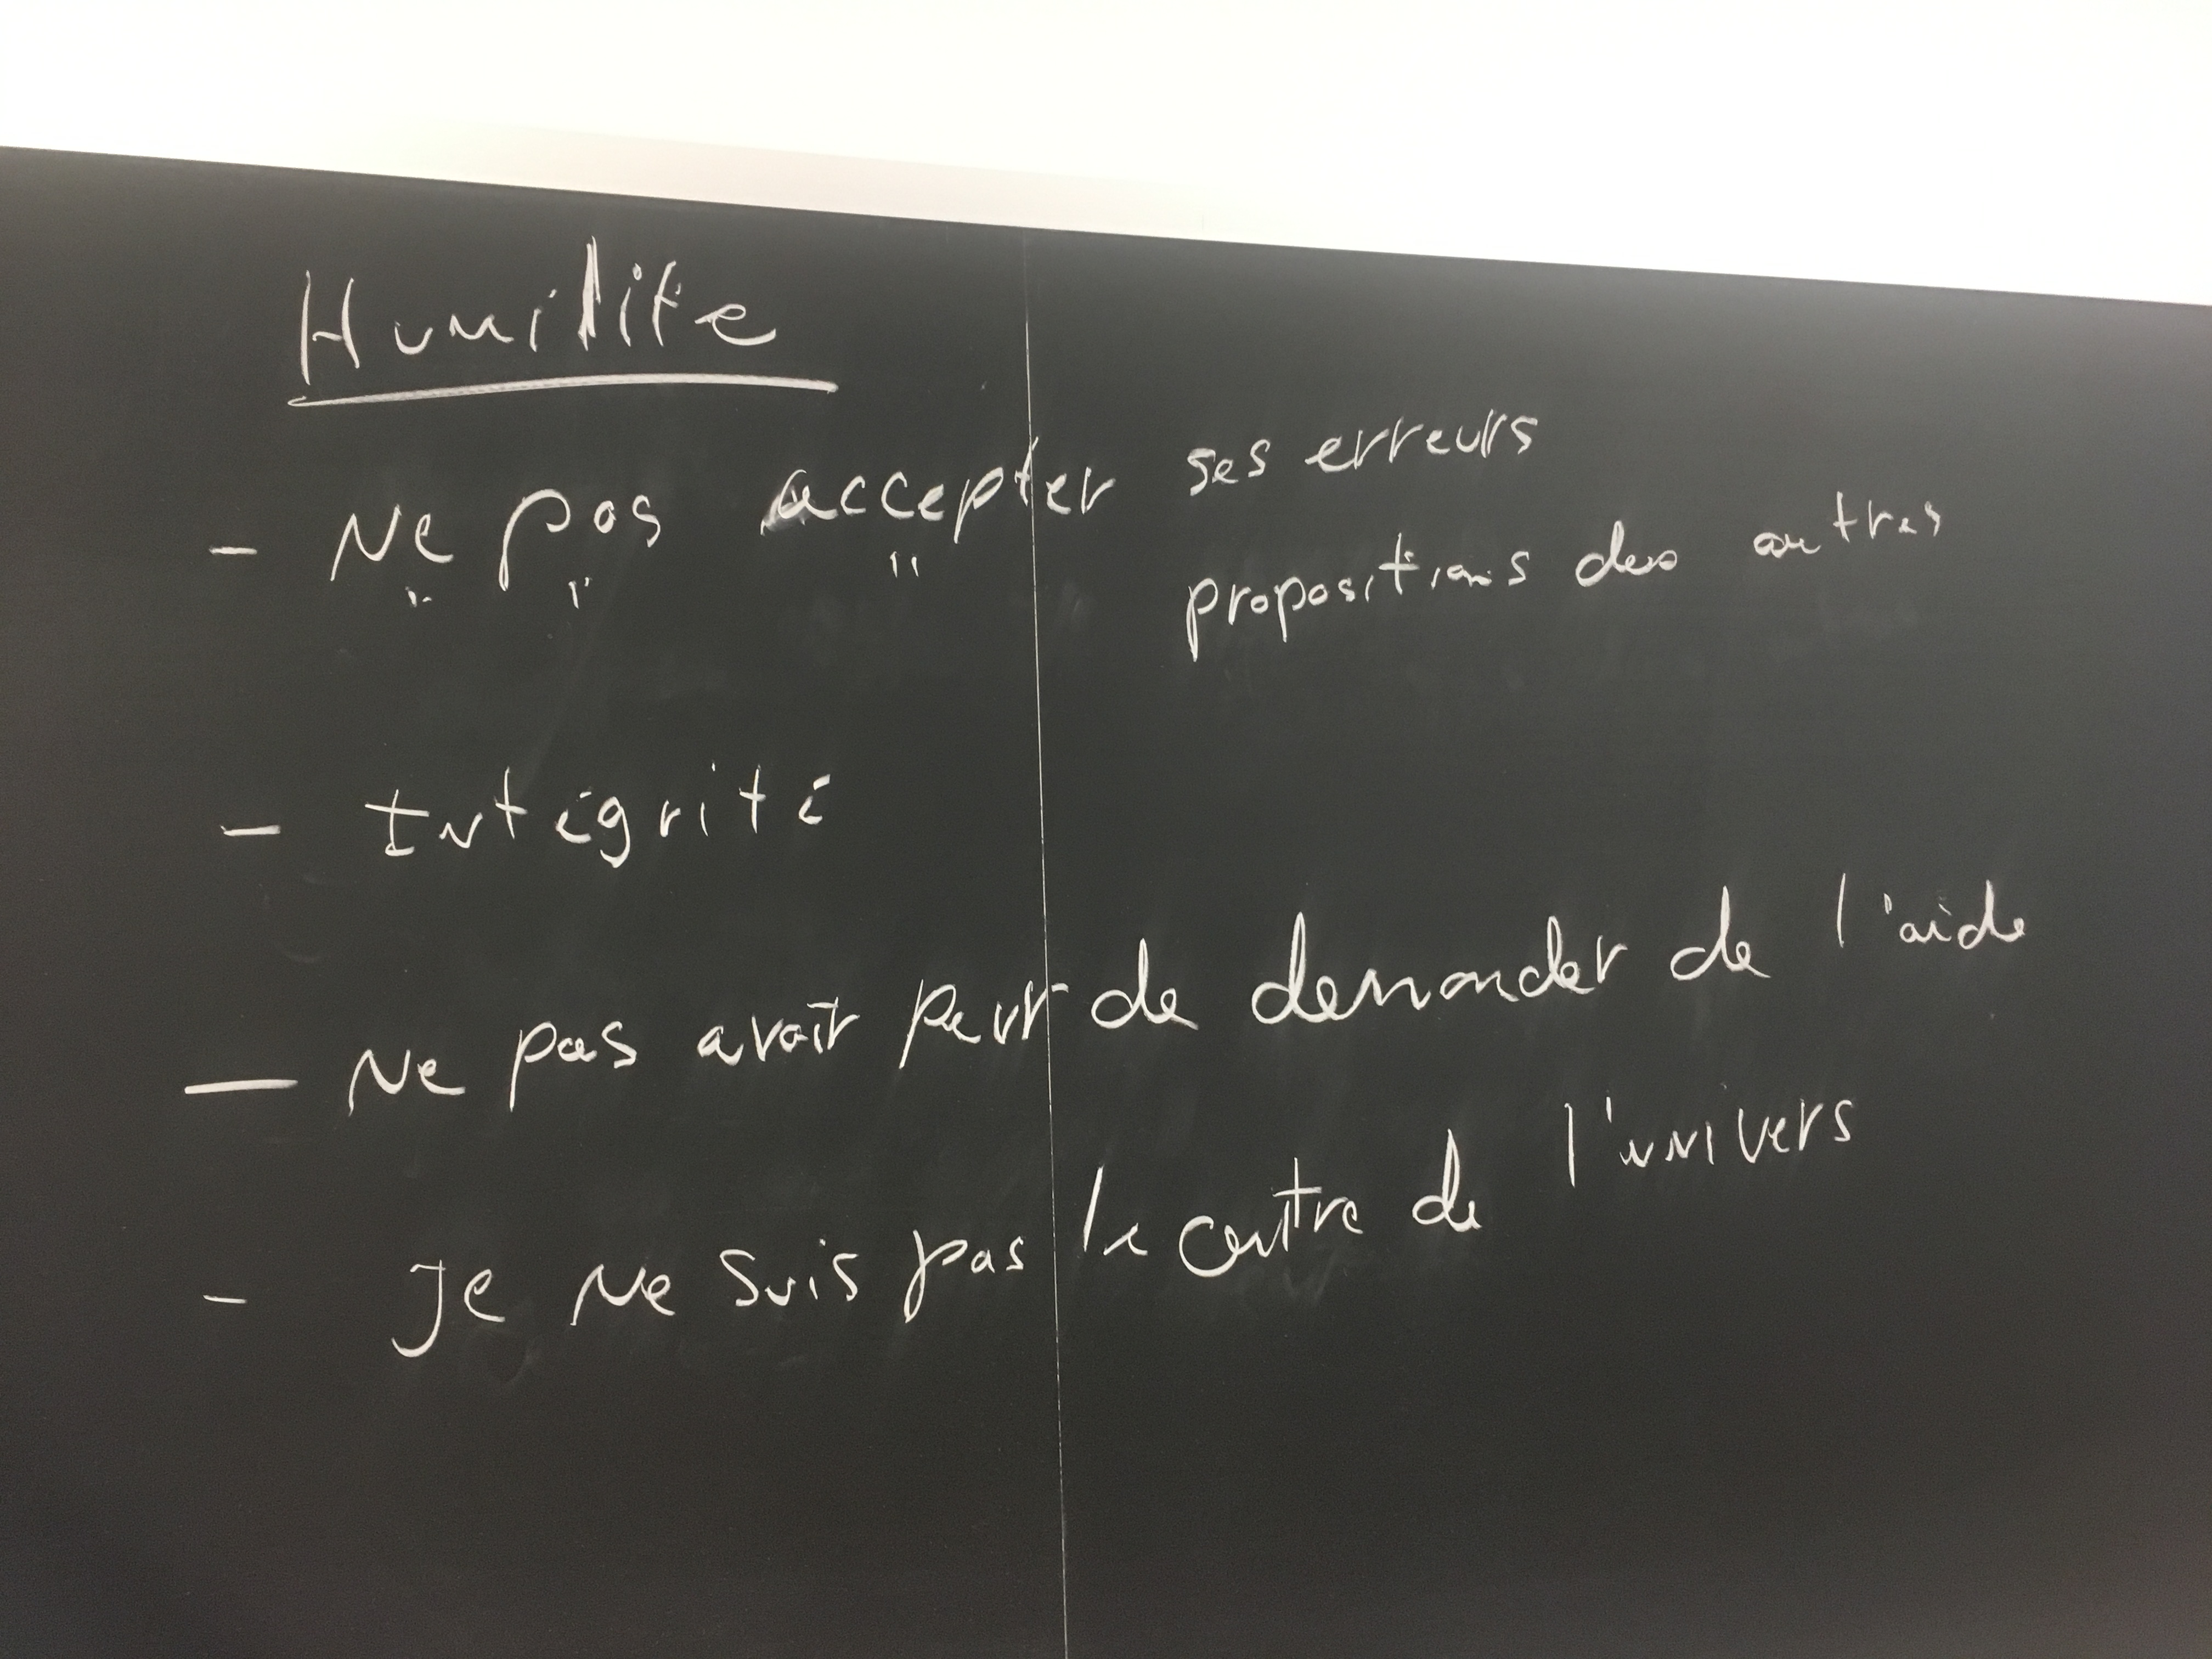 Humilité
- Ne pas accepter ses erreurs
" " " propositions des autres
- Intégrité
- Ne pas avoir peur de demander de l'aide
- Je ne suis pas le centre de l'univers